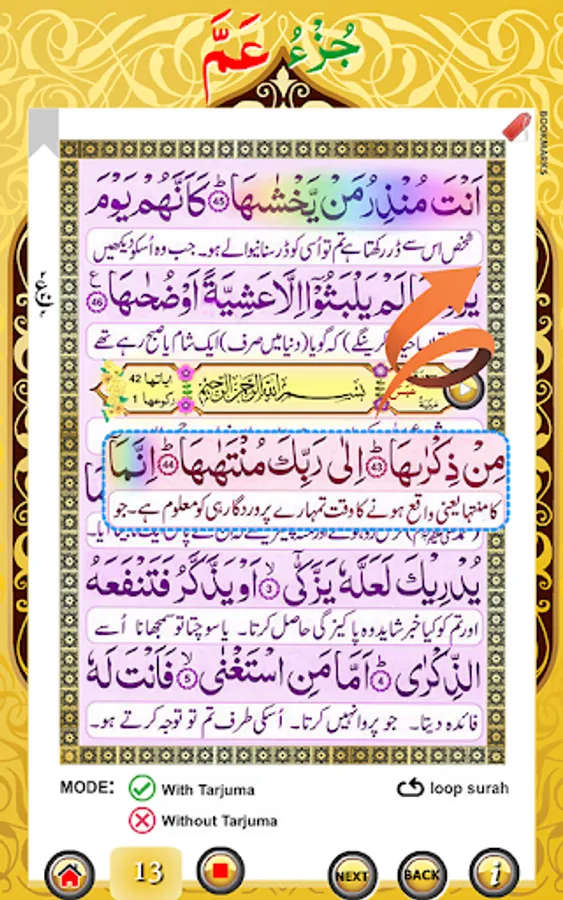 جُزْءُ عَمَّ
BOOKMARKS
اَنْتَ مُنْذِرُ مَنْ يَّخْشٰىهَا ﴿45﴾ كَاَنَّهُمْ يَوْمَ
شخص اس سے ڈر رکھتا ہے تم تو اُسی کو ڈر سنانیوالے ہو۔ جب وہ اُسکو دیکھیں
لَمْ يَلْبَثُوْٓا اِلَّا عَشِيَّةً اَوْ ضُحٰىهَا ﴿46﴾
کہ گویا (دنیا میں صرف) ایک شام یا صبح رہے تھے
بِسْمِ اللهِ الرَّحْمٰنِ الرَّحِيْمِ
اٰياتها 42
ركوعها 1
مِنْ ذِكْرٰىهَا ﴿43﴾ اِلٰى رَبِّكَ مُنْتَهٰىهَا ﴿44﴾ اِنَّمَآ
کا منتہا یعنی واقع ہونے کا وقت تمہارے پروردگار ہی کو معلوم ہے۔ جو
يُدْرِيْكَ لَعَلَّهٗ يَزَّكّٰىٓ ﴿3﴾ اَوْ يَذَّكَّرُ فَتَنْفَعَهُ
اور تم کو کیا خبر شاید وہ پاکیزگی حاصل کرتا۔ یا سوچتا تو سمجھانا اُسے
الذِّكْرٰى ﴿4﴾ اَمَّا مَنِ اسْتَغْنٰى ﴿5﴾ فَاَنْتَ لَهٗ
فائدہ دیتا۔ جو پروا نہیں کرتا۔ اُسکی طرف تم تو توجہ کرتے ہو۔
MODE: With Tarjuma
loop surah
Without Tarjuma
13
NEXT
BACK
i